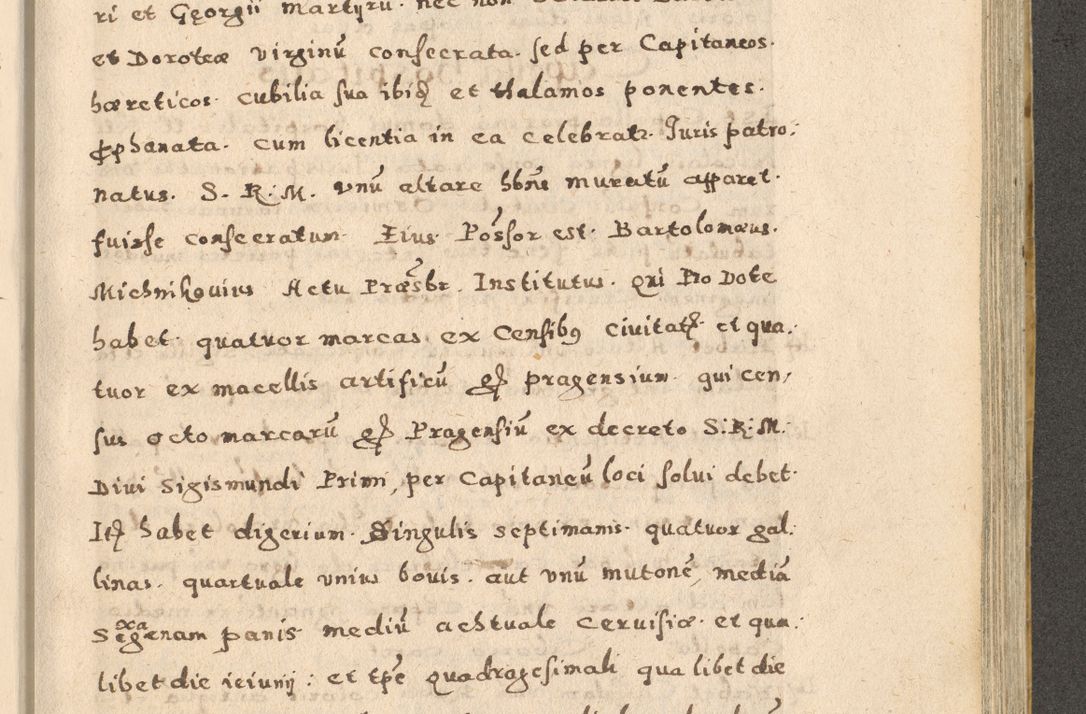 ri et Gęorgii Martyrũ. nec non
et Doroteæ virginũ consecrata. sed per Capitaneos.
hæreticos. cubilia sua ibiđ et thalamos ponentes.
ꝓphanata. cum licentia in ea celebratr. Juris patro:
natus. S. R. M. vnũ altare hbñs muratũ apparet.
fuisse consecratum. Eius Possor est. Bartolomæus.
Michnikouius Actu Præsbr. Institutus. Qui Pro Dote
habet. quatuor marcas. ex Censibꝯ ciuitatꝭ. et qua.
tuor ex macellis artificũ pragensium. qui cen/
sus octo marcarũ Pragensiũ ex decreto S. R. M.
Diui Sigismundi Primi, per Capitaneũ loci solui debet.
Itꝫ habet digerium. Singulis septimanis. quatuor gal.
linas. quartuale vnius bouis. aut vnũ mutonẽ, mediã
Sexagenam panis. mediũ achtuale ceruisiæ. et qua.
libet die ieiunij: et tp̃e quadragesimali qualibet die